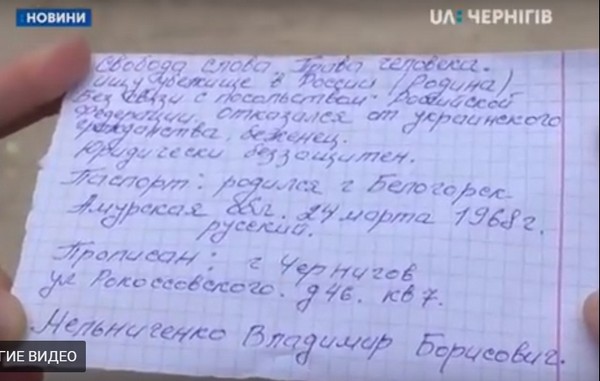 НОВИНИ
UA: ЧЕРНІГІВ
Свобода слова. Права человека.
ищу убежище в России (Родина)
Без связи с посольством Российской
Федерации, отказался от украинского
гражданства, беженец.
Юридически беззащитен.
Паспорт: родился г Белогорск
Амурская обл. 24 марта 1968 г.
русский.
Прописан: г Чернигов
ул Рокоссовского. д 46. кв 7.
Мельниченко Владимир Борисович.
ГИЕ ВИДЕО